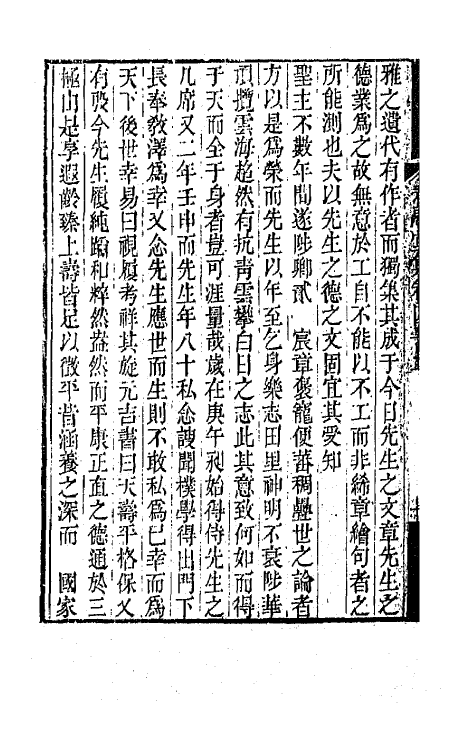 雅之遺代有作者而獨集其成于今日先生之文章先生之
德業爲之故無意於工自不能以不工而非絺章繪句者之
所能測也夫以先生之德之文固宜其受知
聖主不數年間遂陟卿貳 宸章褒寵便蕃稠疊世之論者
方以是爲榮而先生以年至乞身樂志田里神明不衰陟華
頂攬雲海超然有抗青雲攀白日之志此其意致何如而得
于天而全于身者豈可涯量哉歲在庚午昶始得侍先生之
几席又二年壬申而先生年八十私念謏聞樸學得出門下
長奉敎澤爲幸又念先生應世而生則不敢私爲已幸而爲
天下後世幸易曰視履考祥其旋元吉書曰天壽平格保乂
有殷今先生履純蹈和粹然盎然而平康正直之德通於三
極由是享遐齡臻上壽皆足以徵平昔涵養之深而 國家